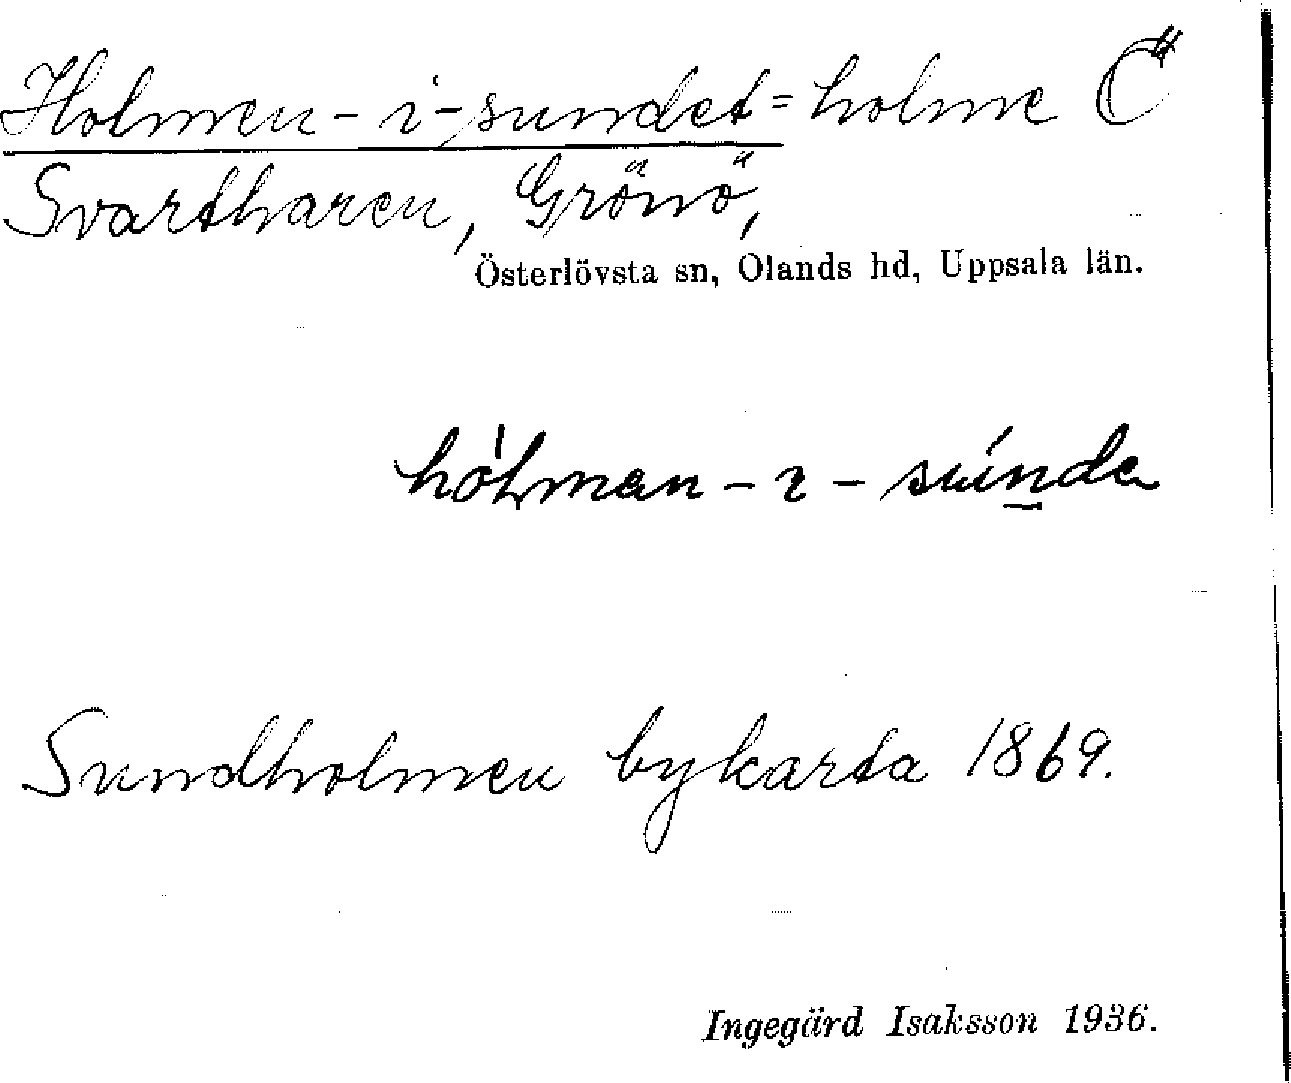 Holmen-i-sundet = holme Ö
Svartharen, Grönö,
Österlövsta sn, Olands hd, Uppsala län.
hólman-ı-súnda
Sundholmen bykarta 1869.
Ingegärd Isaksson 1936.